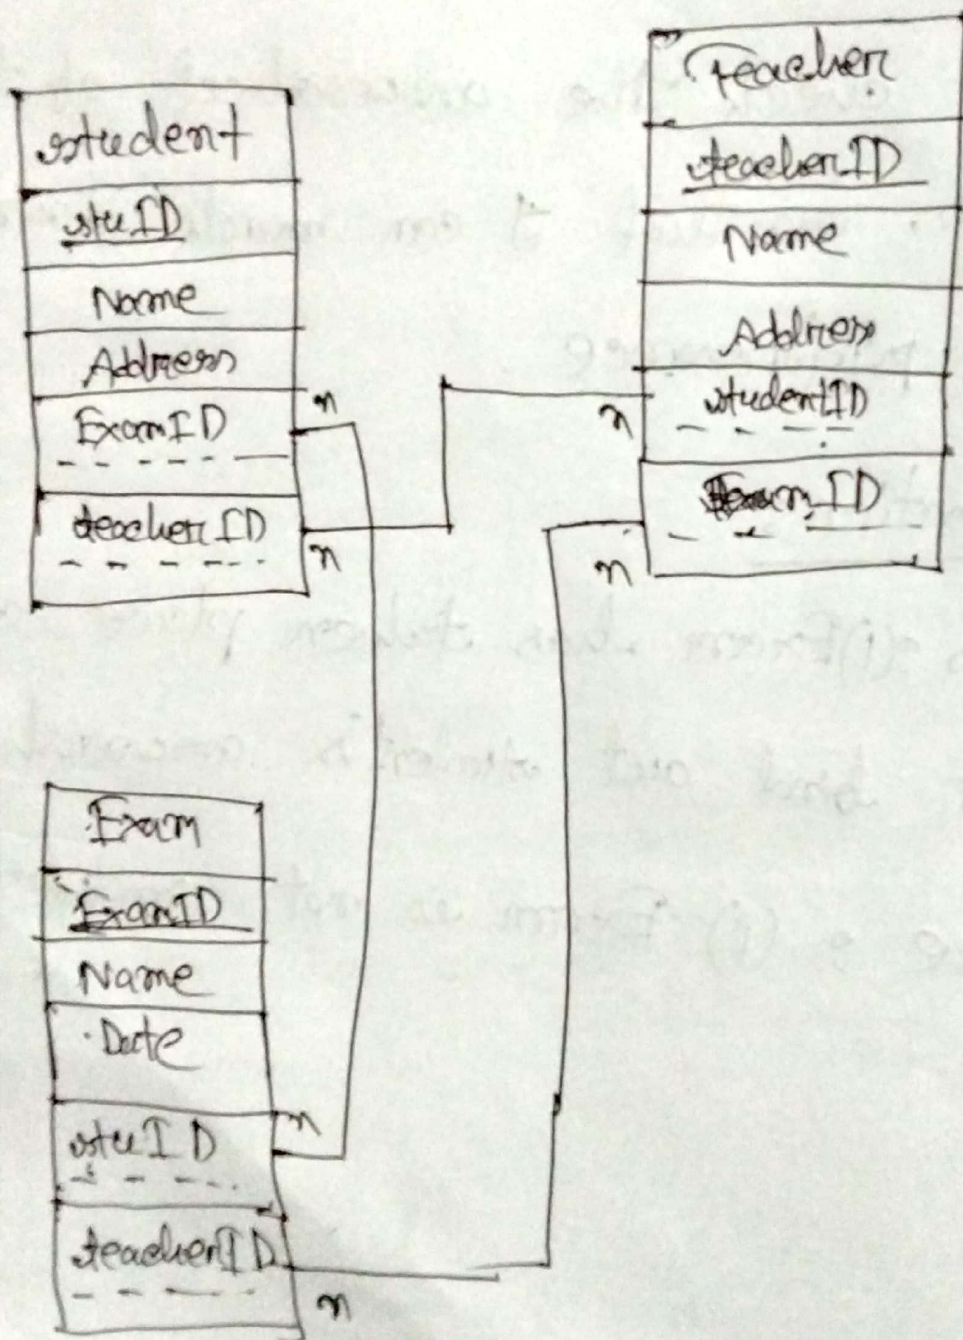 student
stuID
Name
Address
ExamID
teacherID
n
n
Teacher
teacherID
Name
Address
studentID
ExamID
n
n
Exam
ExamID
Name
Date
stuID
teacherID
n
n